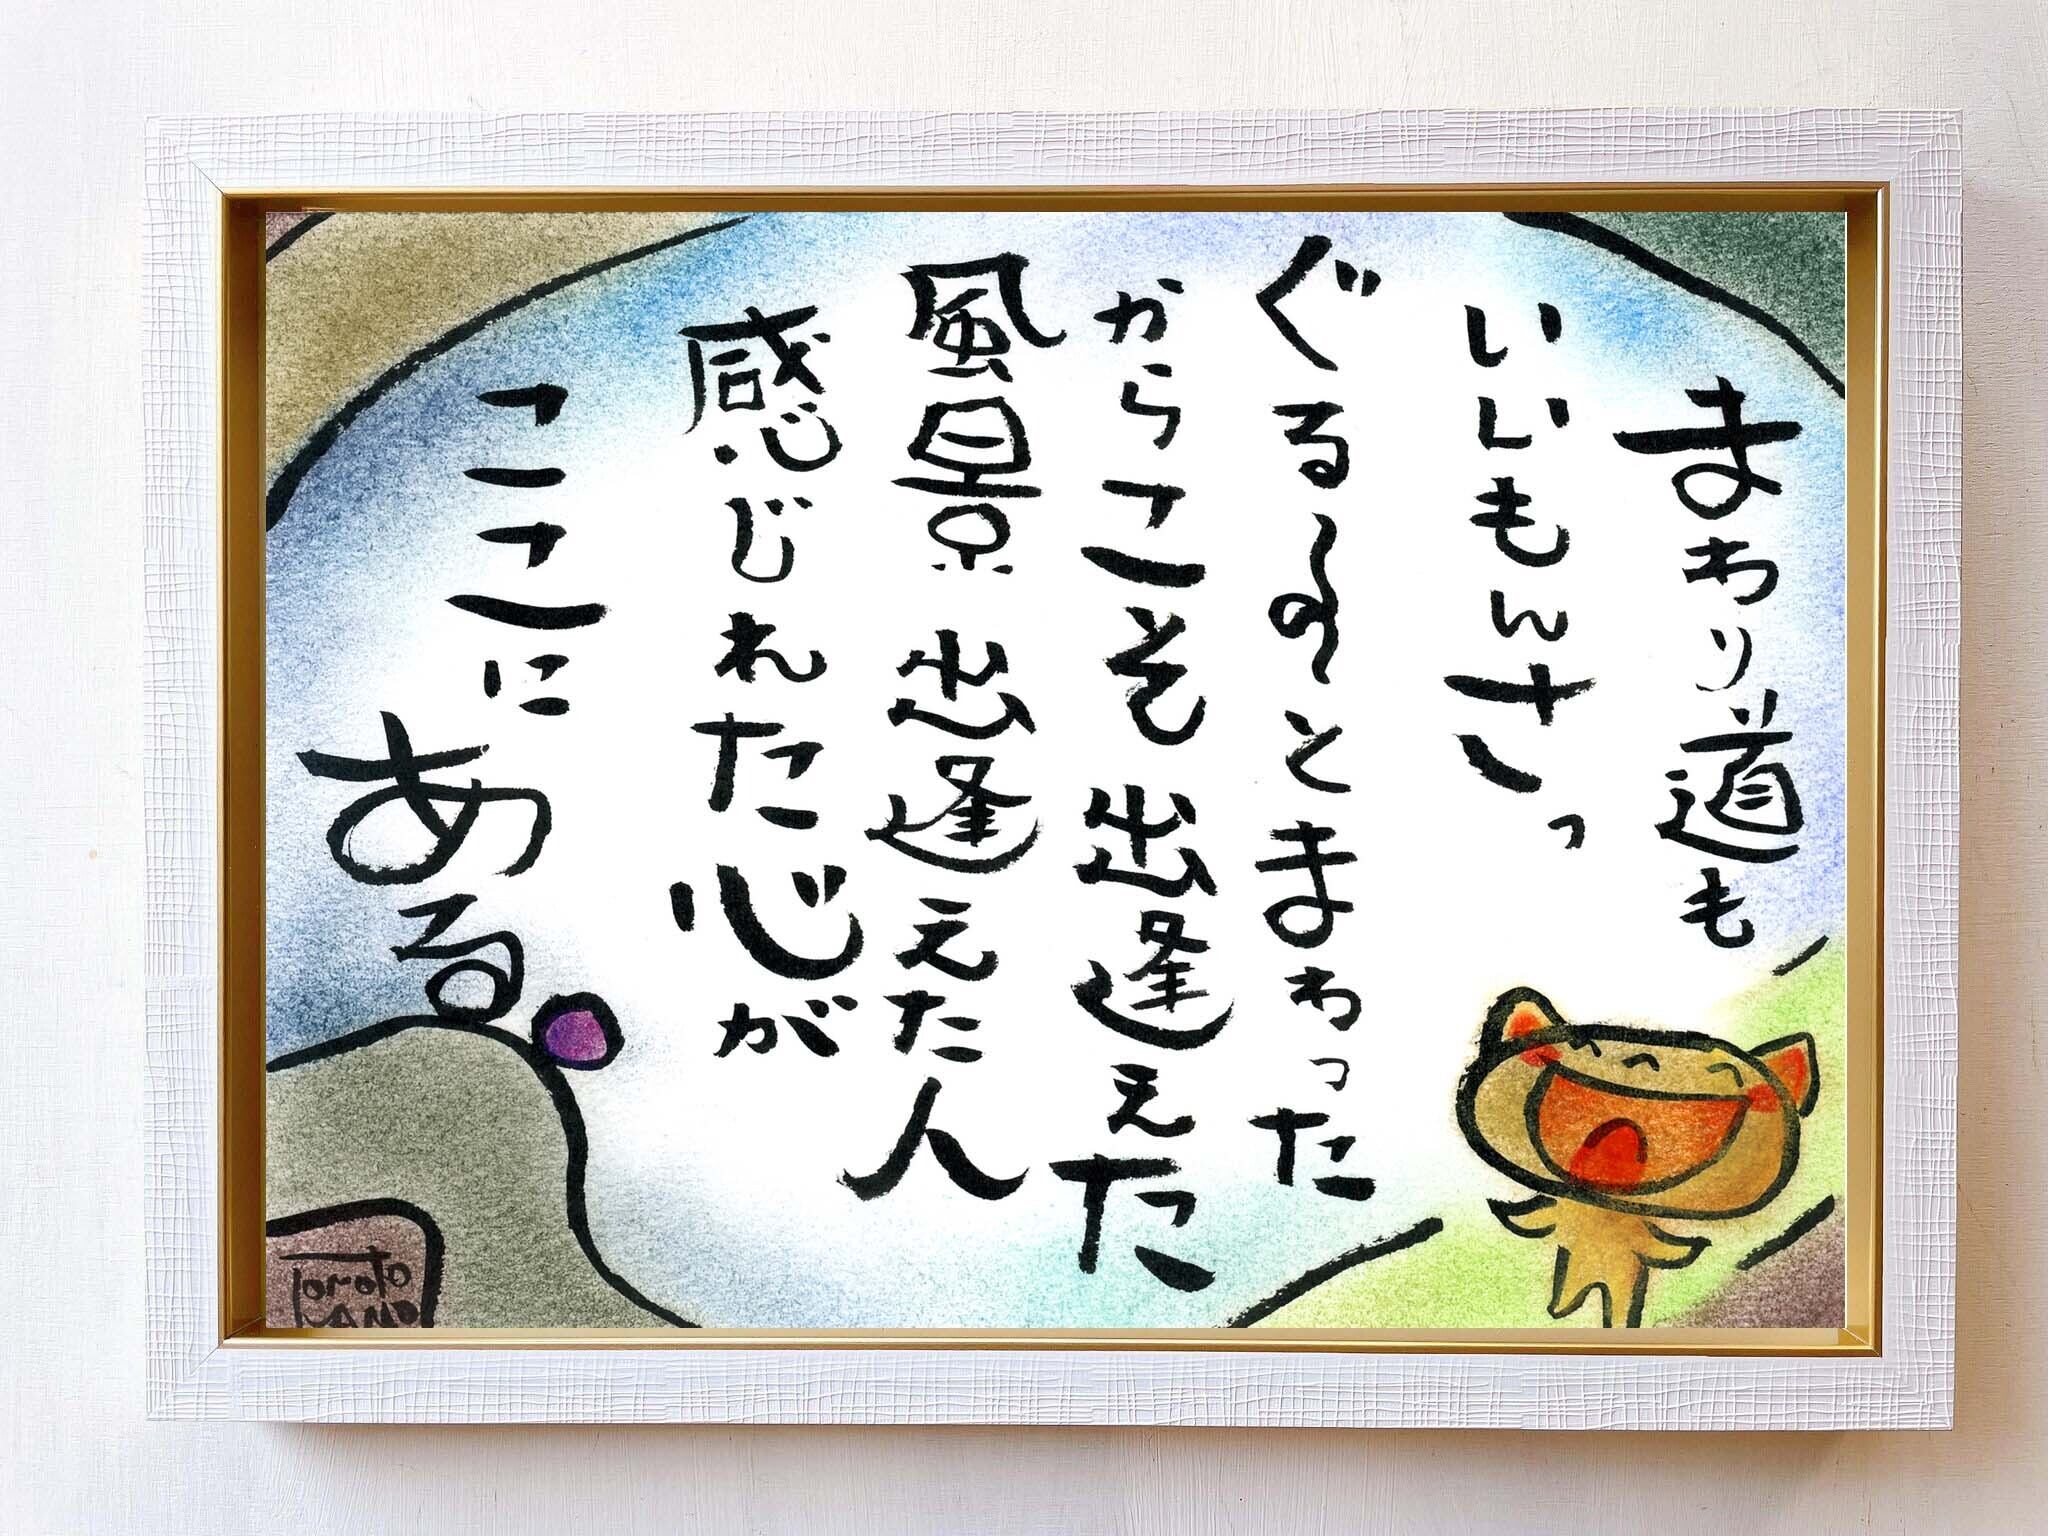 まわり道も
いいもんさっ
ぐる〜るとまわった
からこそ出逢えた
風景 出逢えた人
感じれた心が
ここに
ある